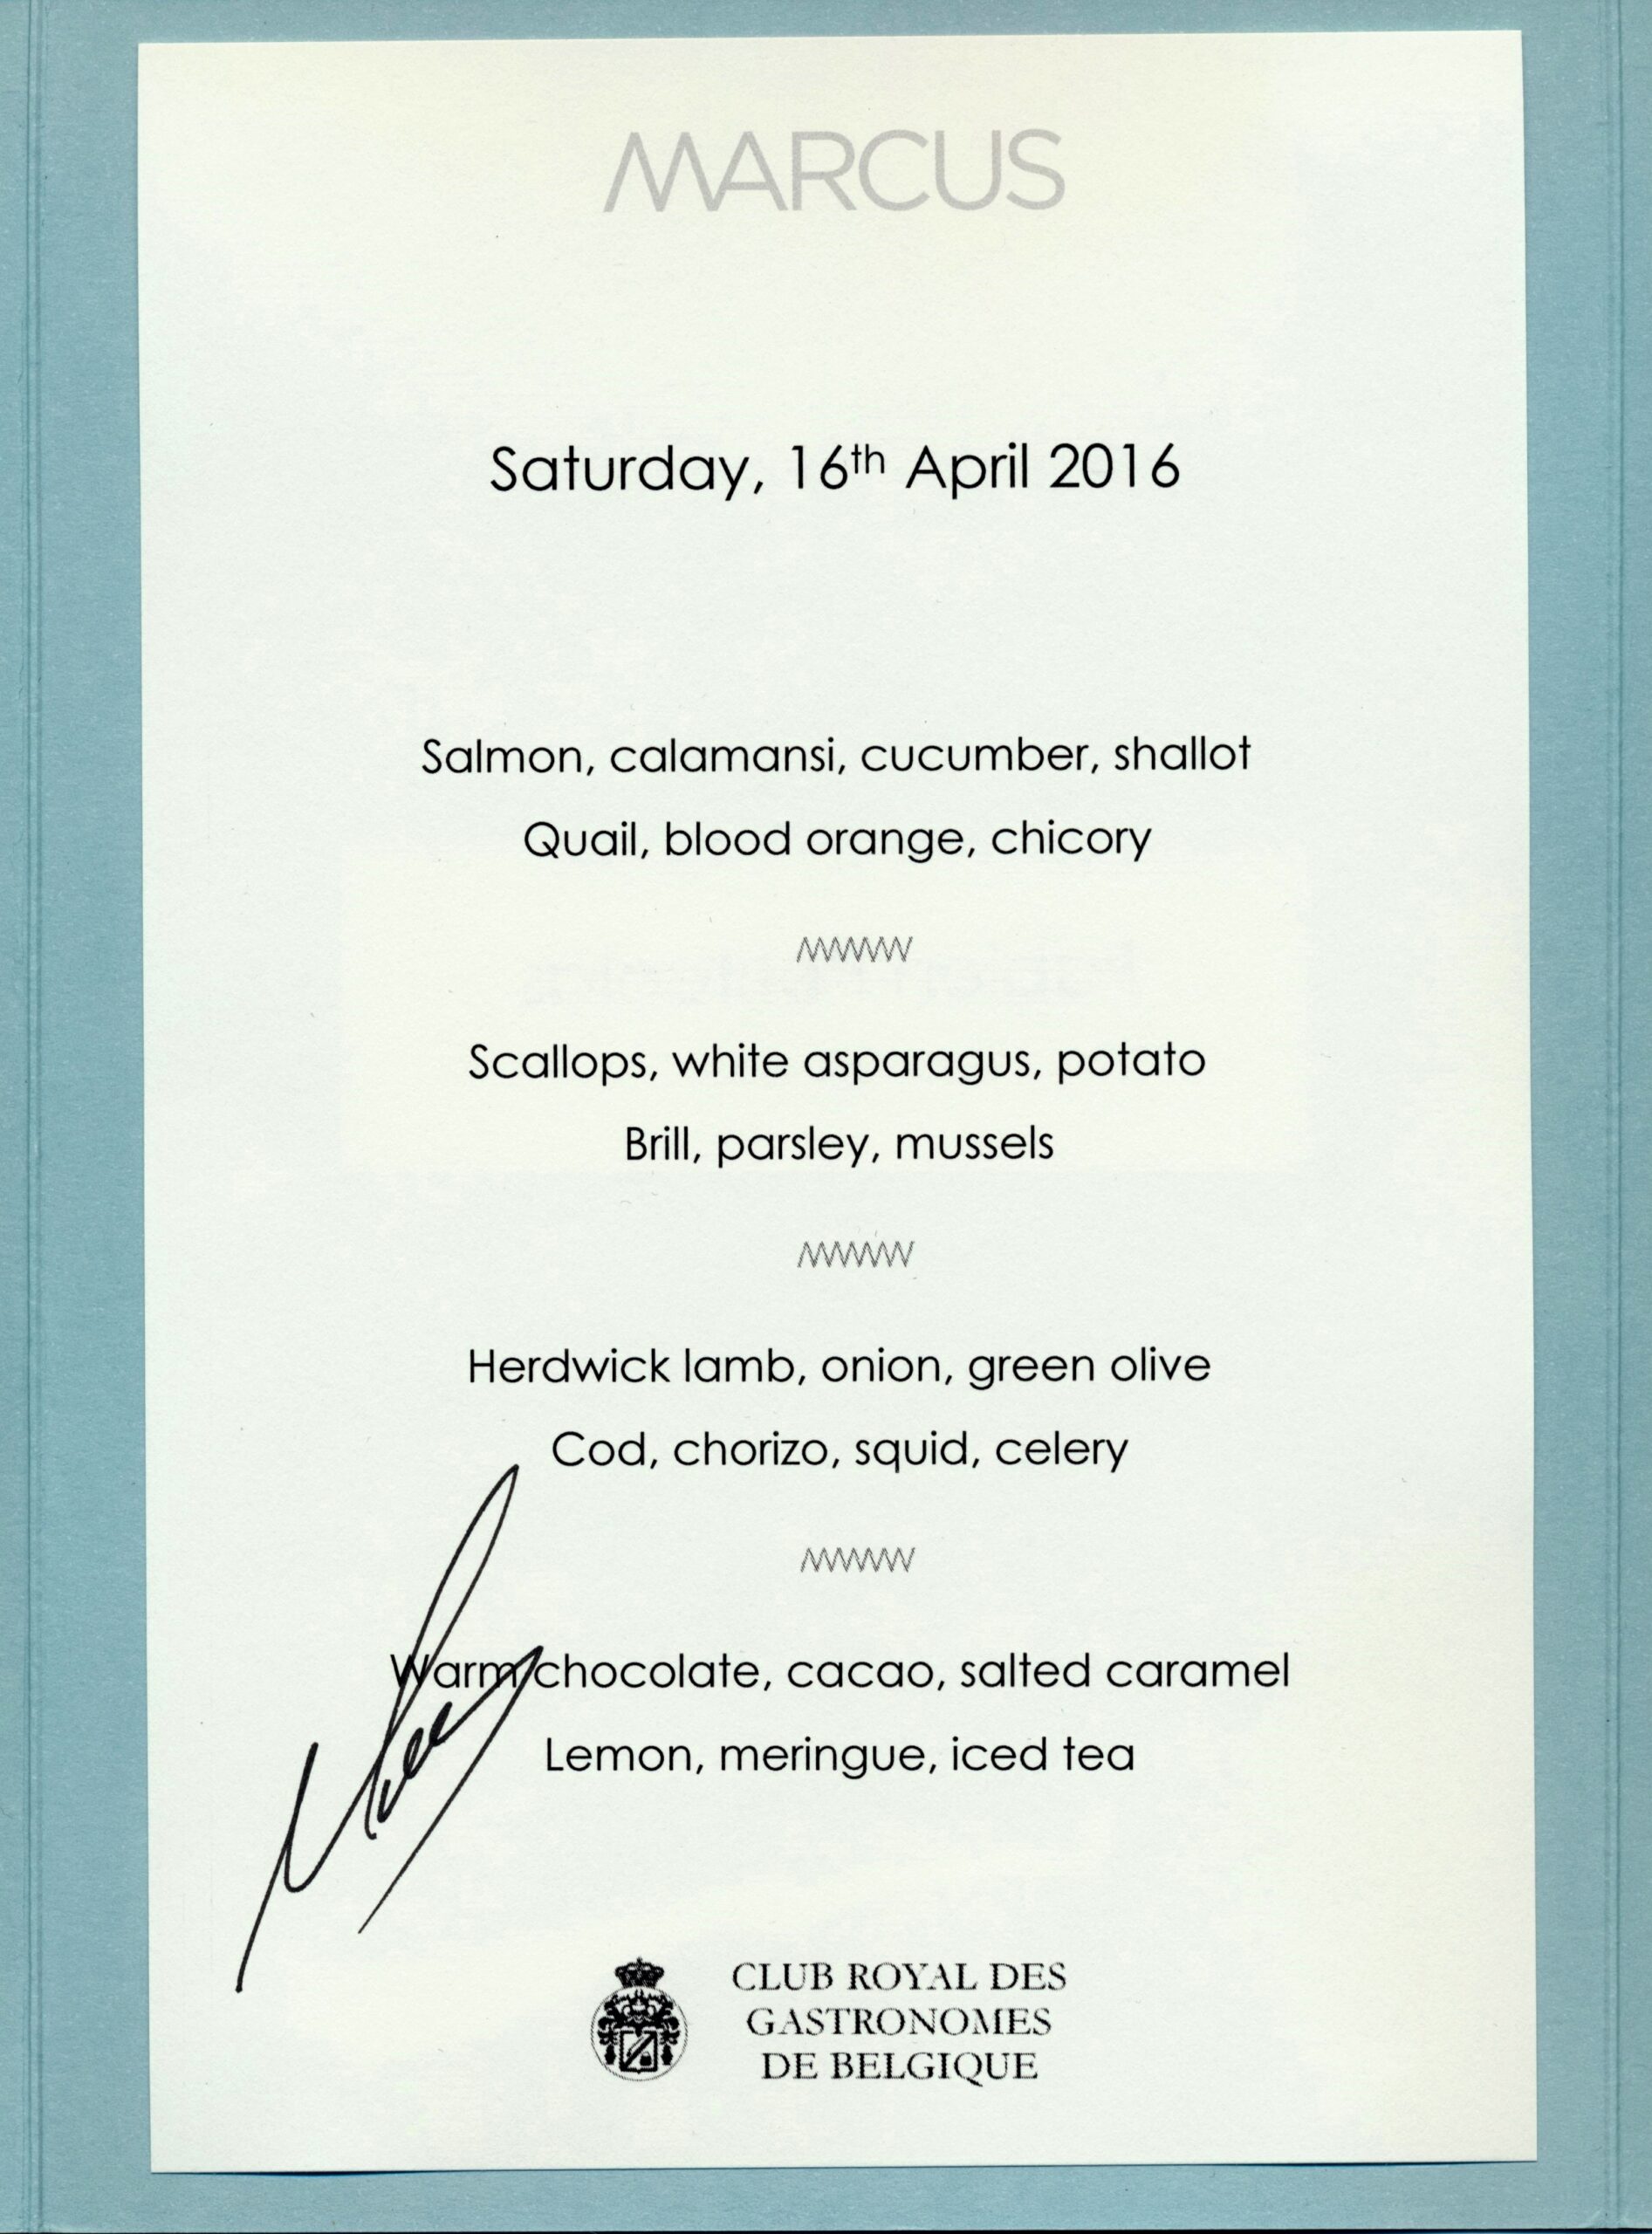 MARCUS
Saturday, 16th April 2016
Salmon, calamansi, cucumber, shallot
Quail, blood orange, chicory
Scallops, white asparagus, potato
Brill, parsley, mussels
Herdwick lamb, onion, green olive
Cod, chorizo, squid, celery
Warm chocolate, cacao, salted caramel
Lemon, meringue, iced tea
CLUB ROYAL DES
GASTRONOMES
DE BELGIQUE